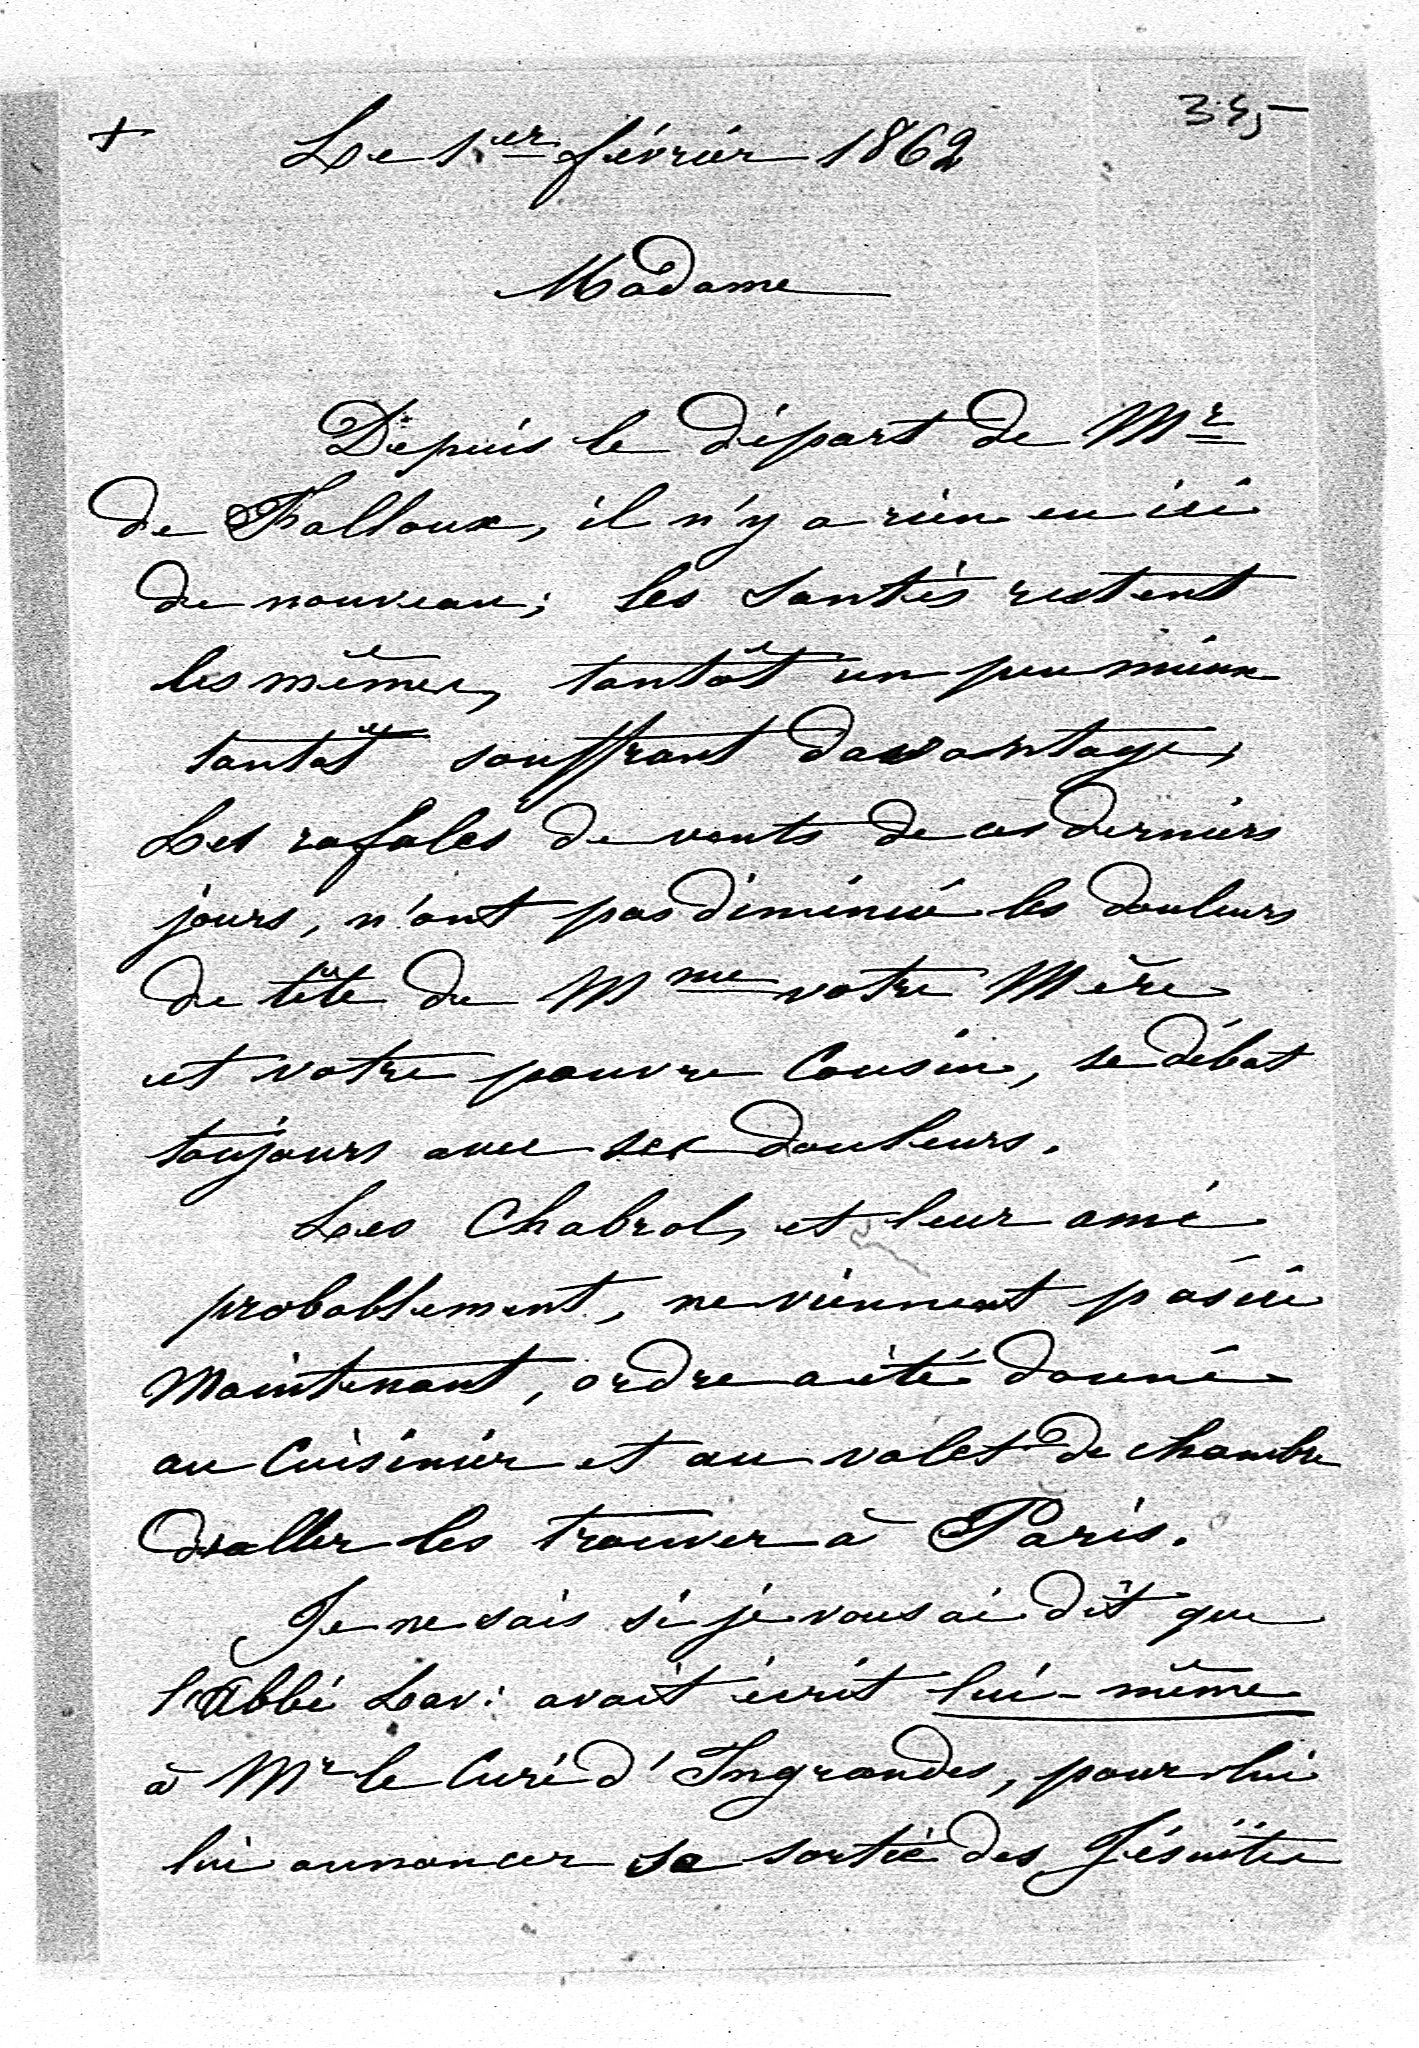 + Le 1er février 1862
Madame
Depuis le départ de Mr
de Falloux, il n'y a rien eu ici
de nouveau; les santés restent
les mêmes, tantôt un peu mieux
tantôt souffrant davantage,
Les rafales de vents de ces derniers
jours, n'ont pas diminué les douleurs
de tête de Mme votre Mère
et votre pauvre Cousin, se débat
toujours avec ses douleurs.
Les Chabrol, et leur ami
probablement, ne viennent pas ici
Maintenant, ordre a été donné
au Cuisinier et au valet de chambre
d'aller les trouver à Paris.
Je ne sais si je vous ai dit que
l'Abbé Lav: avait écrit lui-même
à Mr le Curé d'Ingrandes, pour lui
lui annoncer sa sortie des Jésuites